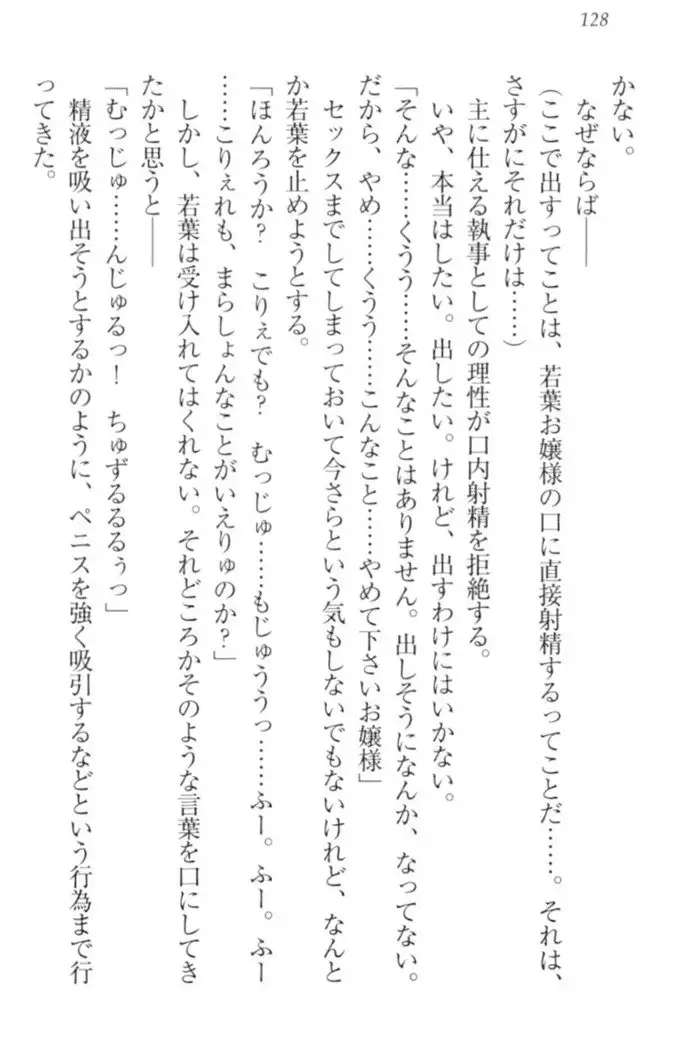 128
かない。
なぜならば――
（ここで出すってことは、若葉お嬢様の口に直接射精するってことだ……。それは、
さすがにそれだけは……）
主に仕える執事としての理性が口内射精を拒絶する。
いや、本当はしたい。出したい。けれど、出すわけにはいかない。
「そんな……くうう……そんなことはありません。出しそうになんか、なってない。
だから、やめ……くうう……こんなこと……やめて下さいお嬢様」
セックスまでしてしまっておいて今さらという気もしないでもないけれど、なんと
か若葉を止めようとする。
「ほんろうか？　こりぇでも？　むっじゅ……もじゅううっ……ふー。ふー。ふー
……こりぇれも、まらしょんなことがいえりゅのか？」
しかし、若葉は受け入れてはくれない。それどころかそのような言葉を口にしてき
たかと思うと――
「むっじゅ……んじゅるっ！　ちゅずるるるぅっ」
精液を吸い出そうとするかのように、ペニスを強く吸引するなどという行為まで行
ってきた。